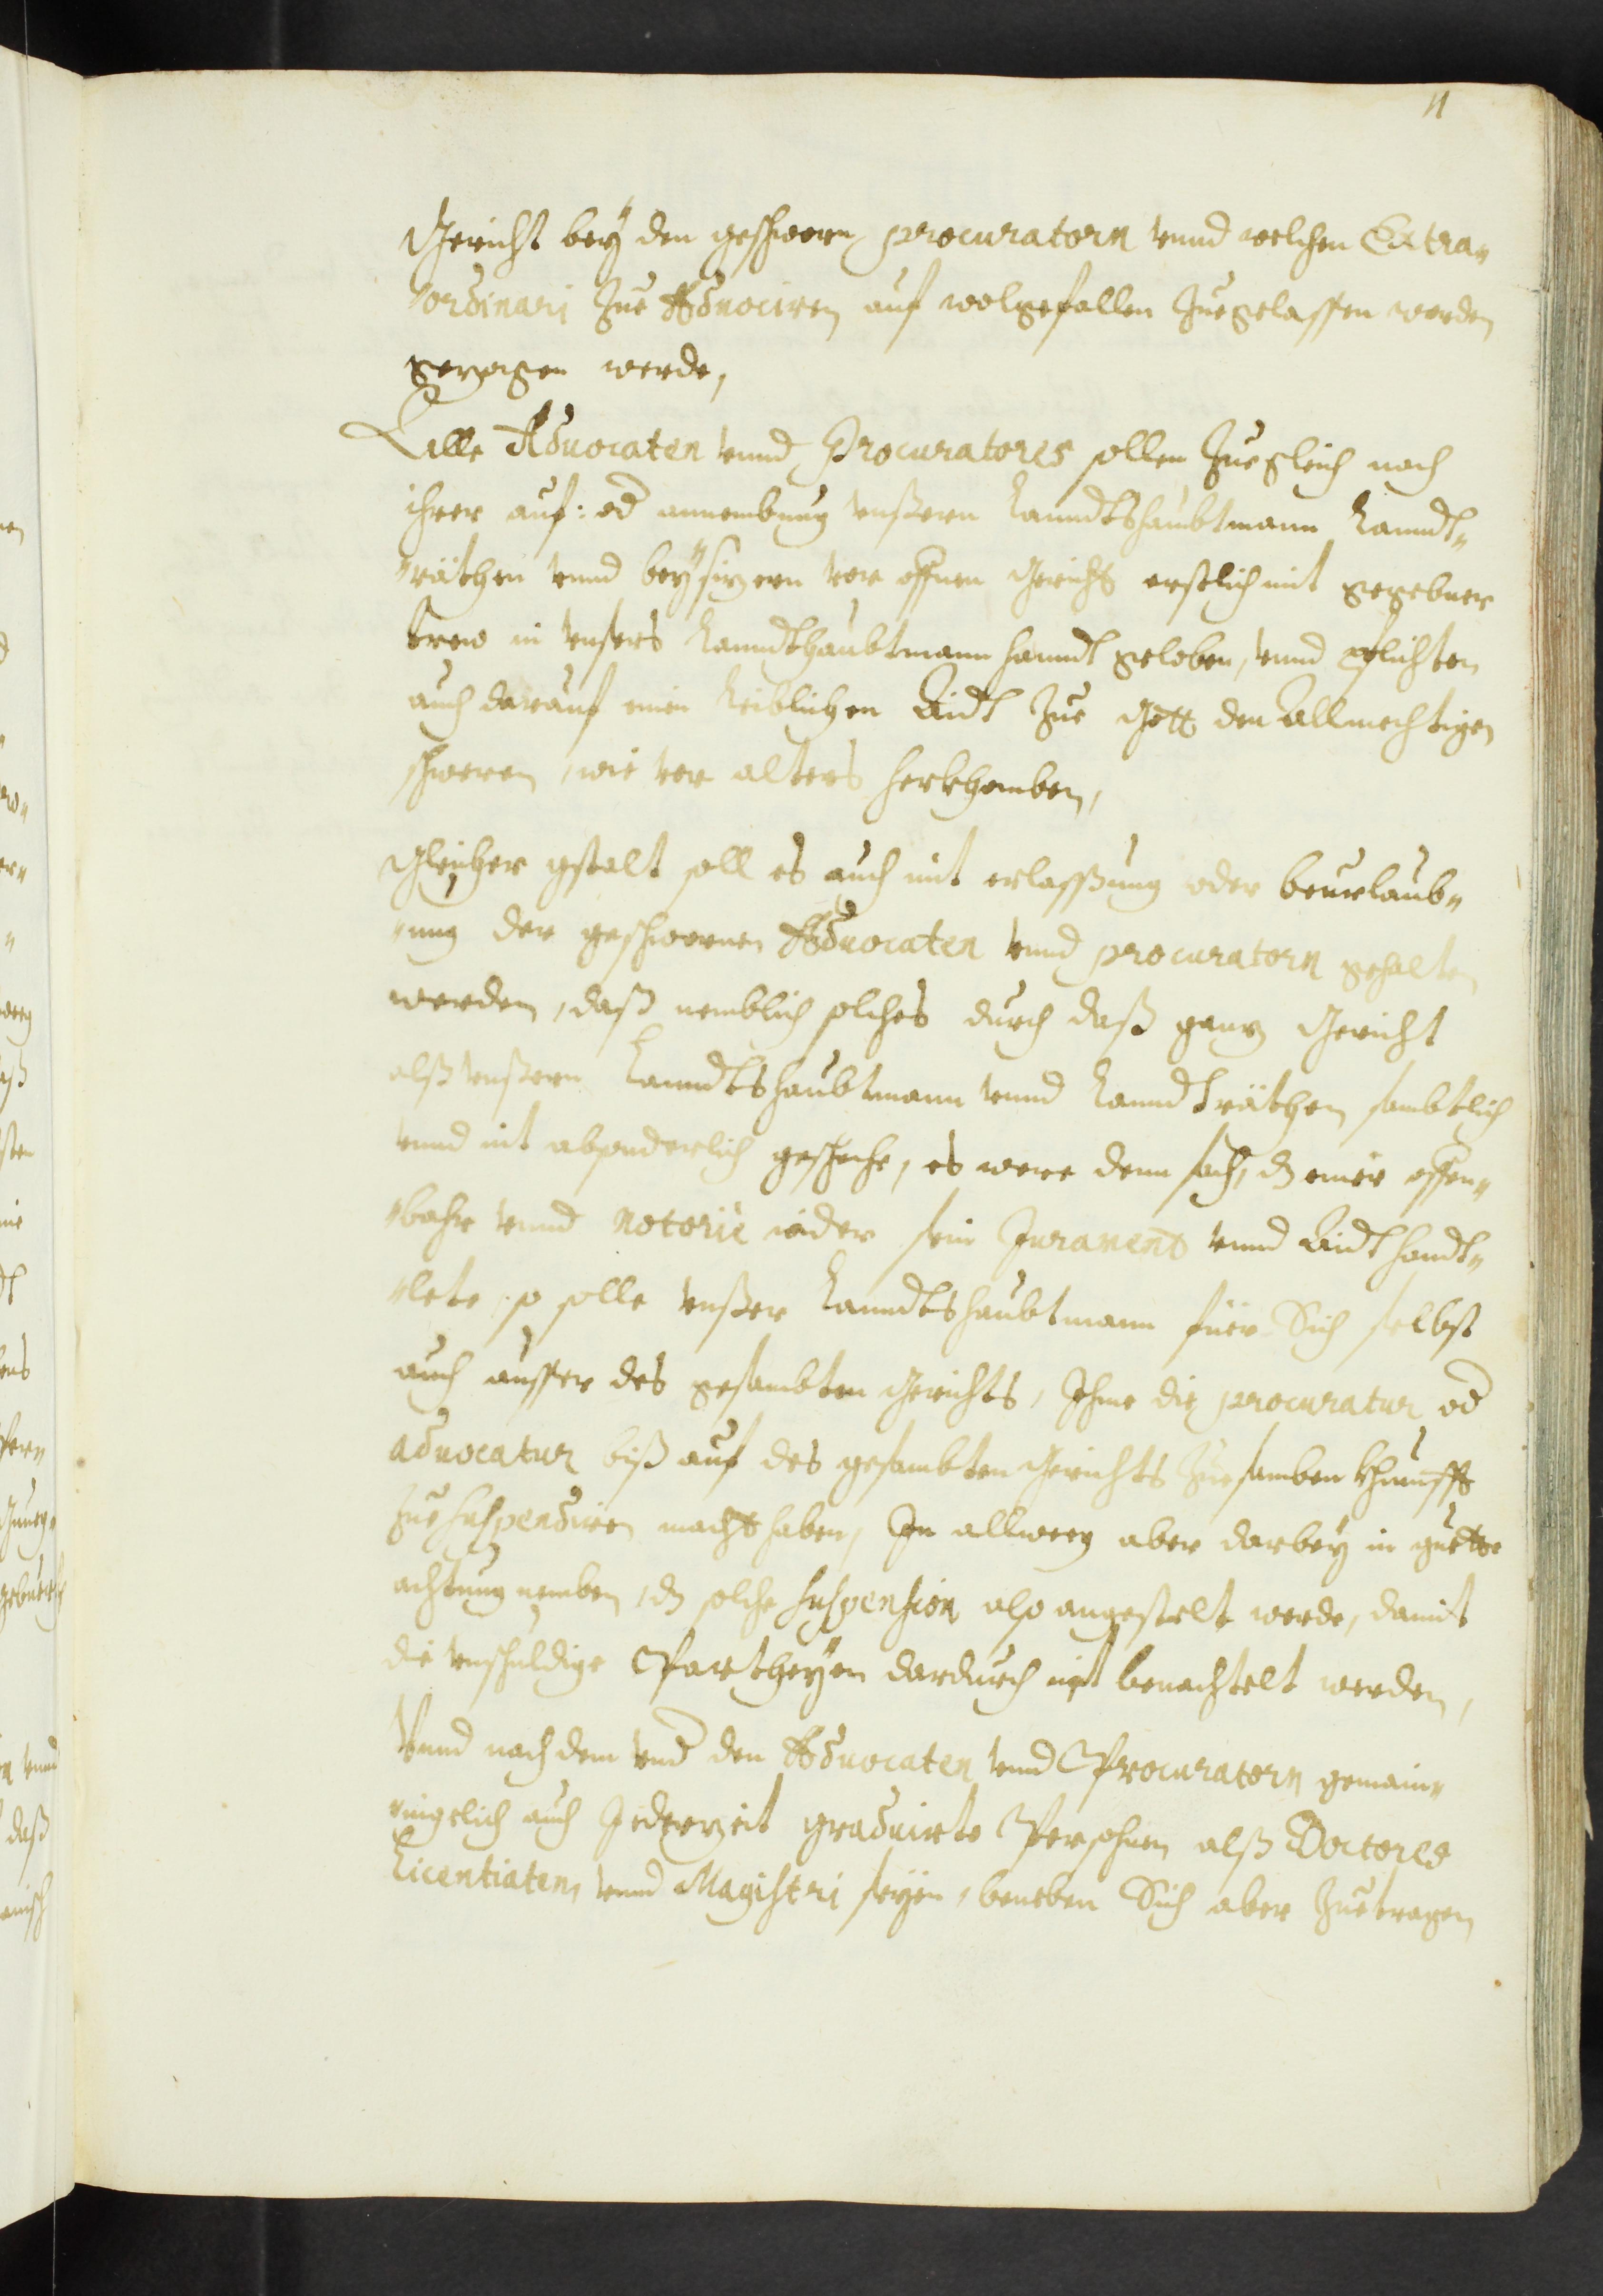 11
Gericht bey den geschworn procuratorn vnnd welchen Extra„
„ordinari Zue Aduociren auf wolgefallen Zuegelassen worden
gezogen werde,
Alle Aduocaten vnnd Procuratores sollen Zuegleich nach
ihrer auf: od annembung vnßern Lanndtshaubtmann Lanndt„
„räthen vnnd beÿsizern vor offnen Gericht erstlich mit gegebner
trew in vnsers Lanndthaubtmann hanndt geloben, vnnd pflichten
auch darauf einen Leiblichen Aidt Zue Gott den Allmechtigen
schweren, wie vor alters herkhomben,
Gleicher gstalt soll es auch mit erlassßung oder beurlaub„
„ung der geschwornen Aduocaten vnnd procuratorn gehalten
werden, daß nemblich solches durch daß ganz Gericht
alß vnßern Lanndtshaubtmann vnnd Lanndträthen sambtlich
vnnd nit absonderlich geschehe, es were denn sach, dz einer offen„
„bahr vnnd Notoriè wider sein Jurament vnnd Aidt handt„
„lete, so solle vnßer Lanndtshaubtmann füer Sich selbst
auch ausser des gesambten Gerichts, Ihme die procuratur od
aduocatur biß auf des gesambten Gerichts Zuesamben Khunfft
Zue suspendiren macht haben, In allweeg aber darbeÿ in guette
achtung nemben, dz solche suspension also angestelt werde, damit
die vnschuldige Partheÿen dardurch nit benachtelt werden,
Vnnd nach dem vnd den Aduocaten vnnd Procuratorn gemain„
„ingelich auch Jederzeit graduirte Persohnen alß Doctores
Licentiaten, vnnd Magistri seÿen, beneben Sich aber Zuetragen